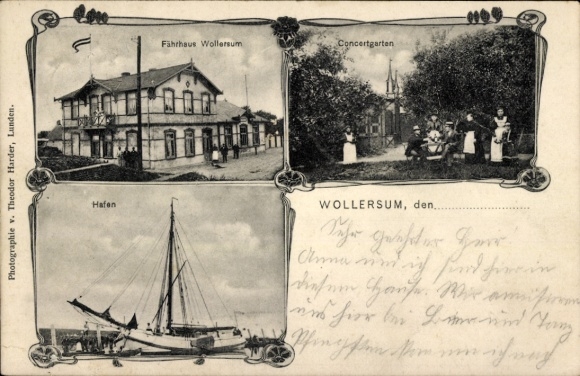 Fährhaus Wollersum
Concertgarten
Hafen
Photographie v. Theodor Harder, Lunden.
WOLLERSUM, den
Sehr geehrter Herr
Anna und ich sind hier in
diesem Hause. Wir amüsieren
uns hier bei Bier und Tanz
Pfingsten ich nach